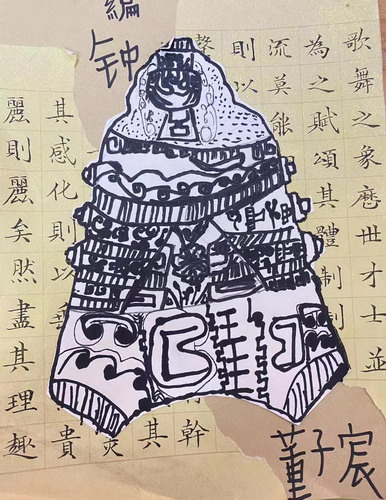 编钟
歌舞之象歷世才士並
為之賦頌其體制
流莫能
則以
聲
幹
其
其感化則以垂
貴
麗則麗矣然盡其理趣
董子宸